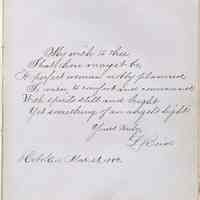 My wish to thee
That thou mayst be
A perfect woman nobly planned
To warn to comfort and command
With spirits still and bright
Yet something of an angels light
Yours truly
L
Hoboken